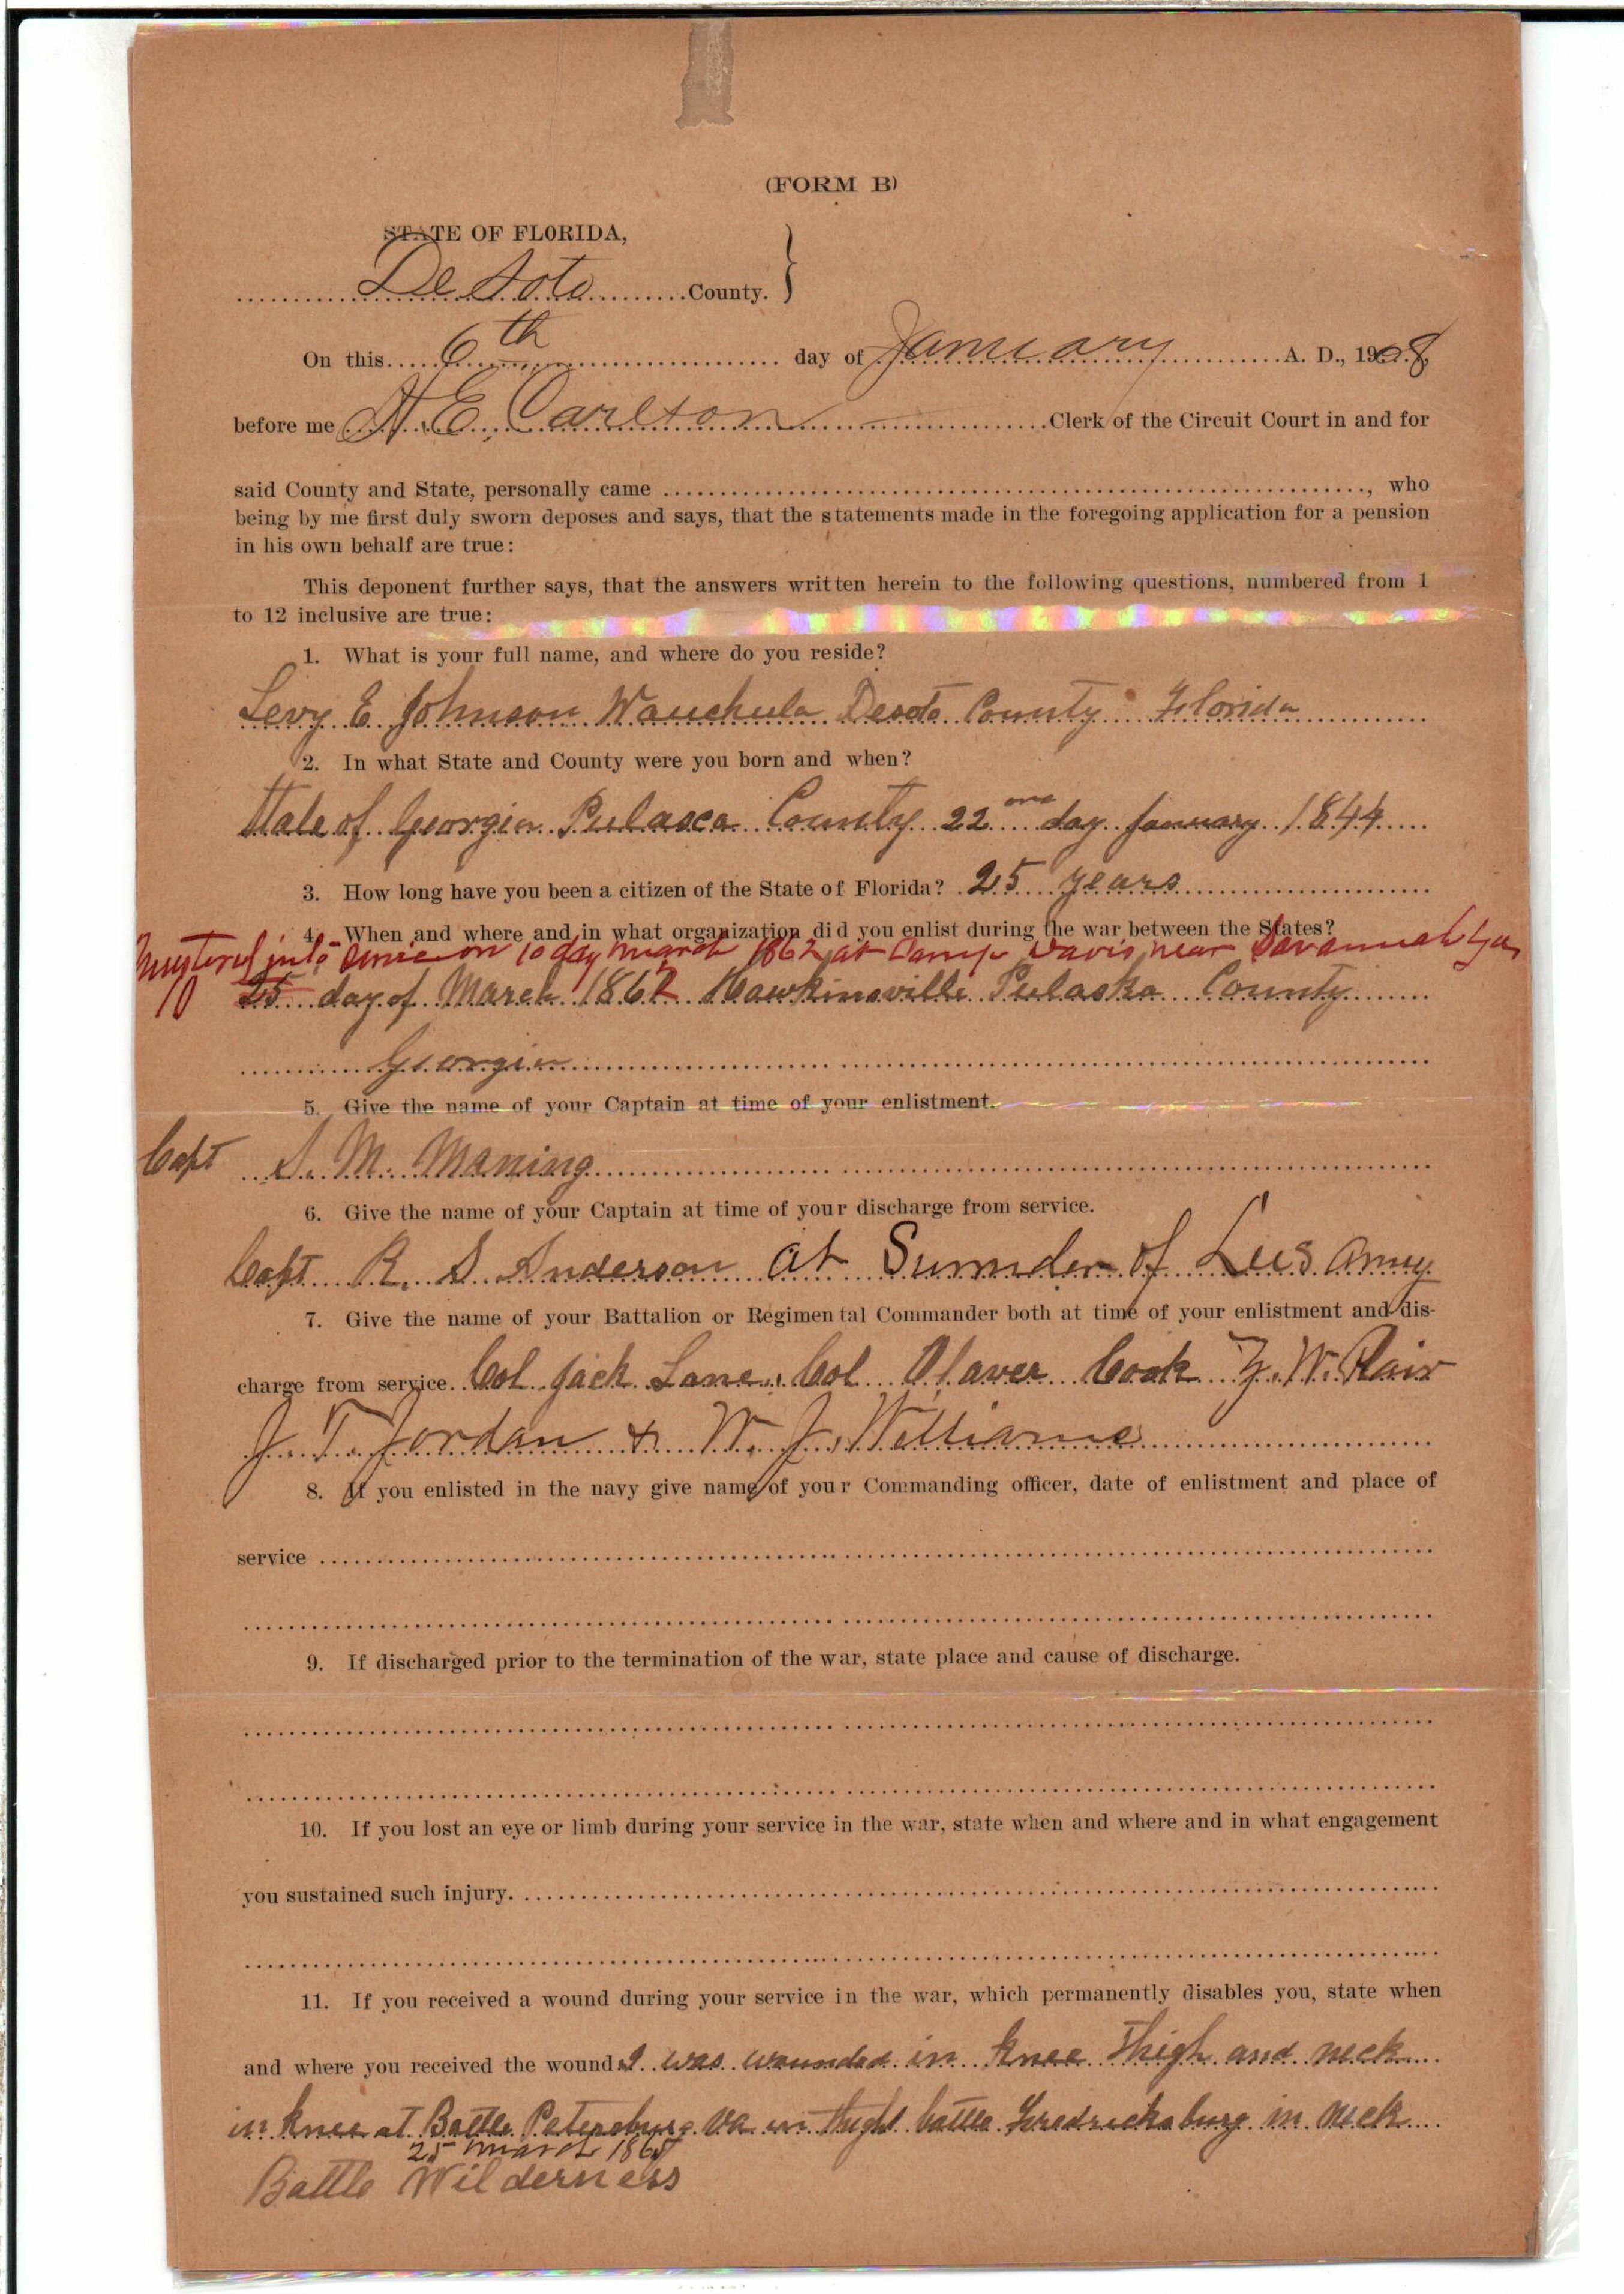 (FORM B)
STATE OF FLORIDA,
De Soto County. }
On this 6th day of January A. D., 1908
before me A. E. Carlton Clerk of the Circuit Court in and for
said County and State, personally came , who
being by me first duly sworn deposes and says, that the statements made in the foregoing application for a pension
in his own behalf are true:
This deponent further says, that the answers written herein to the following questions, numbered from 1
to 12 inclusive are true:
1. What is your full name, and where do you reside?
Levy E Johnson Wauchula Desoto County Florida
2. In what State and County were you born and when?
State of Georgia Pulasca County 22 day January 1844
3. How long have you been a citizen of the State of Florida? 25 years
4. When and where and in what organization did you enlist during the war between the States?
Mustered into service on 10 day march 1862 at Camp Davis near Savannah Ga
10 25 day of March 1862 Hawkinsville Pulaska County
Georgia
5. Give the name of your Captain at time of your enlistment.
Capt S. M. Maning
6. Give the name of your Captain at time of your discharge from service.
Capt R. S. Anderson at Surrnder of Lees Army
7. Give the name of your Battalion or Regimental Commander both at time of your enlistment and dis-
charge from service. Col Jack Lane, Col Cook W.
J. T. Jordan & W. J. Williams
8. If you enlisted in the navy give name of your Commanding officer, date of enlistment and place of
service
9. If discharged prior to the termination of the war, state place and cause of discharge.
10. If you lost an eye or limb during your service in the war, state when and where and in what engagement
you sustained such injury.
11. If you received a wound during your service in the war, which permanently disables you, state when
and where you received the wound. I was wounded in knee Thigh and neck
in knee at Battle Petersburg Va in thight battle Fredricksburg in neck
25 March 1865
Battle Wilderness